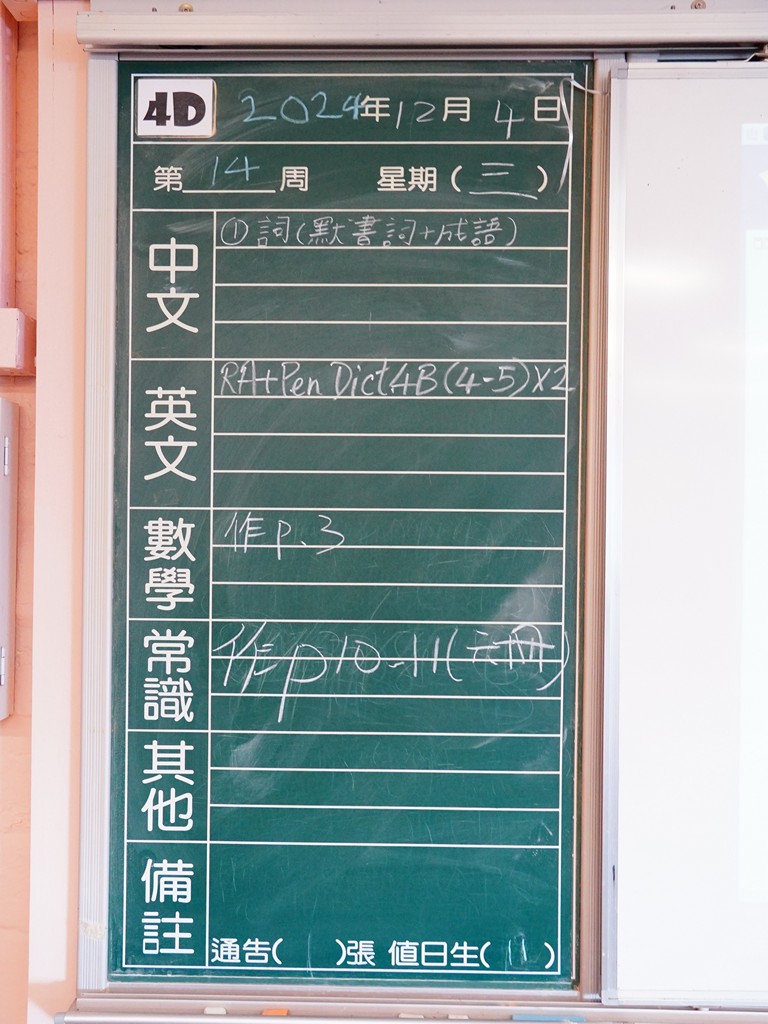 4D 2024年12月4日
第 14 周 星期(三)
中文
①詞(默書詞+成語)
英文
RA+Pen Dict4B(4-5)X2
數學
作p.3
常識
作p10-11(
其他
備註
通告( )張 值日生(11)